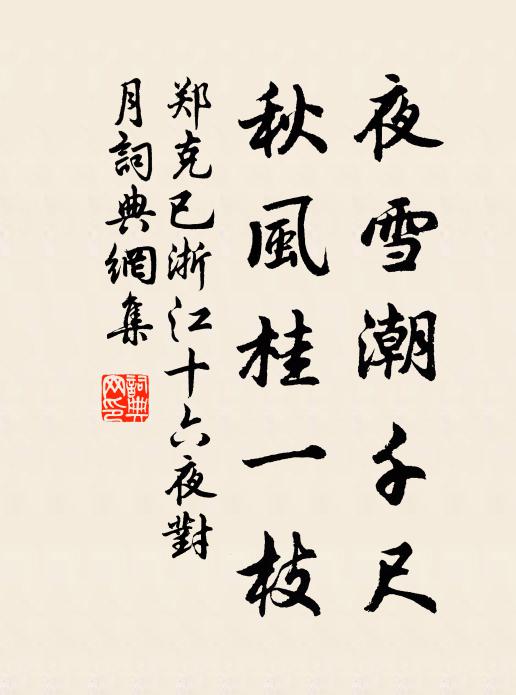 夜雪潮千尺
秋風桂一枝
郑克己浙江十六夜對
月詞典網集
詞典網印